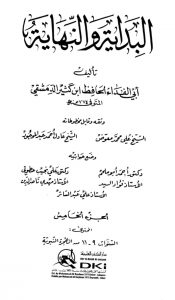 البداية والنهاية
تأليف
أبي الفداء الحافظ ابن كثير الدمشقي
المتوفى ٧٧٤ هـ
وثقه وقابل مخطوطاته
الشيخ علي محمد معوض
الشيخ عادل أحمد عبد الموجود
وضع حواشيه
دكتور أحمد أبو ملحم
دكتور علي نجيب عطوي
الأستاذ فؤاد السيد
الأستاذ مهدي ناصر الدين
الأستاذ علي عبد الساتر
الجزء الخامس
المحتوى:
السنوات ٩ - ١١ من الهجرة النبوية
DKi